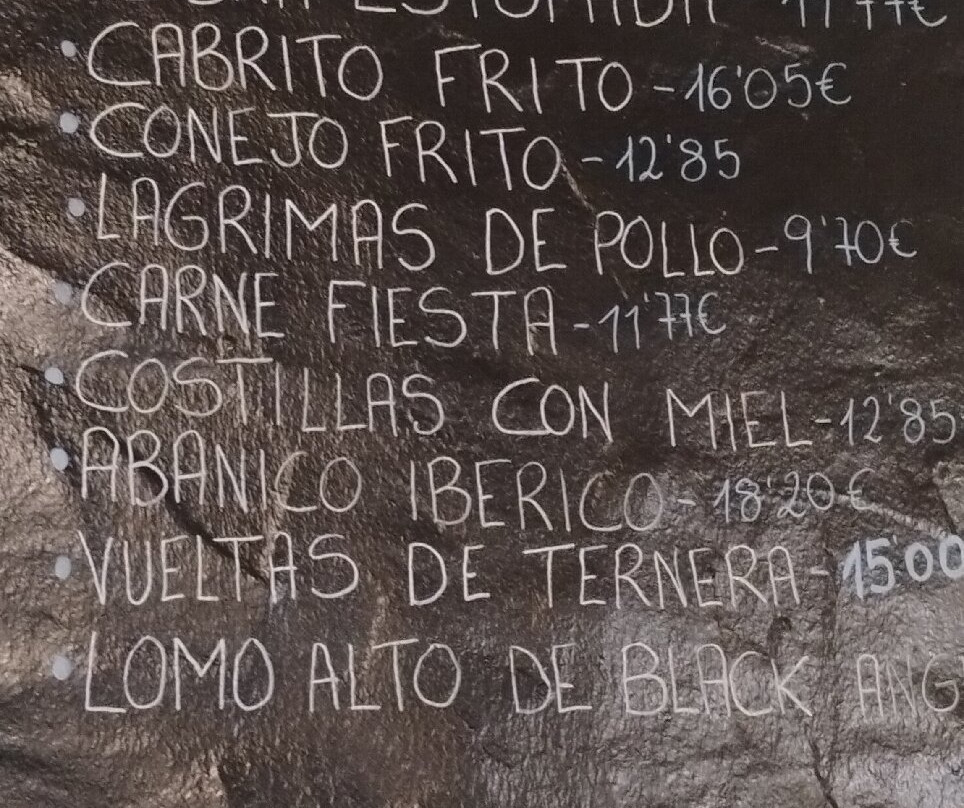 ESTOMIDA 11'77€
CABRITO FRITO - 16'05€
CONEJO FRITO - 12'85
LAGRIMAS DE POLLO - 9'70€
CARNE FIESTA - 11'77€
COSTILLAS CON MIEL - 12'85
ABANICO IBERICO - 18'20€
VUELTAS DE TERNERA - 15'00
LOMO ALTO DE BLACK ANG